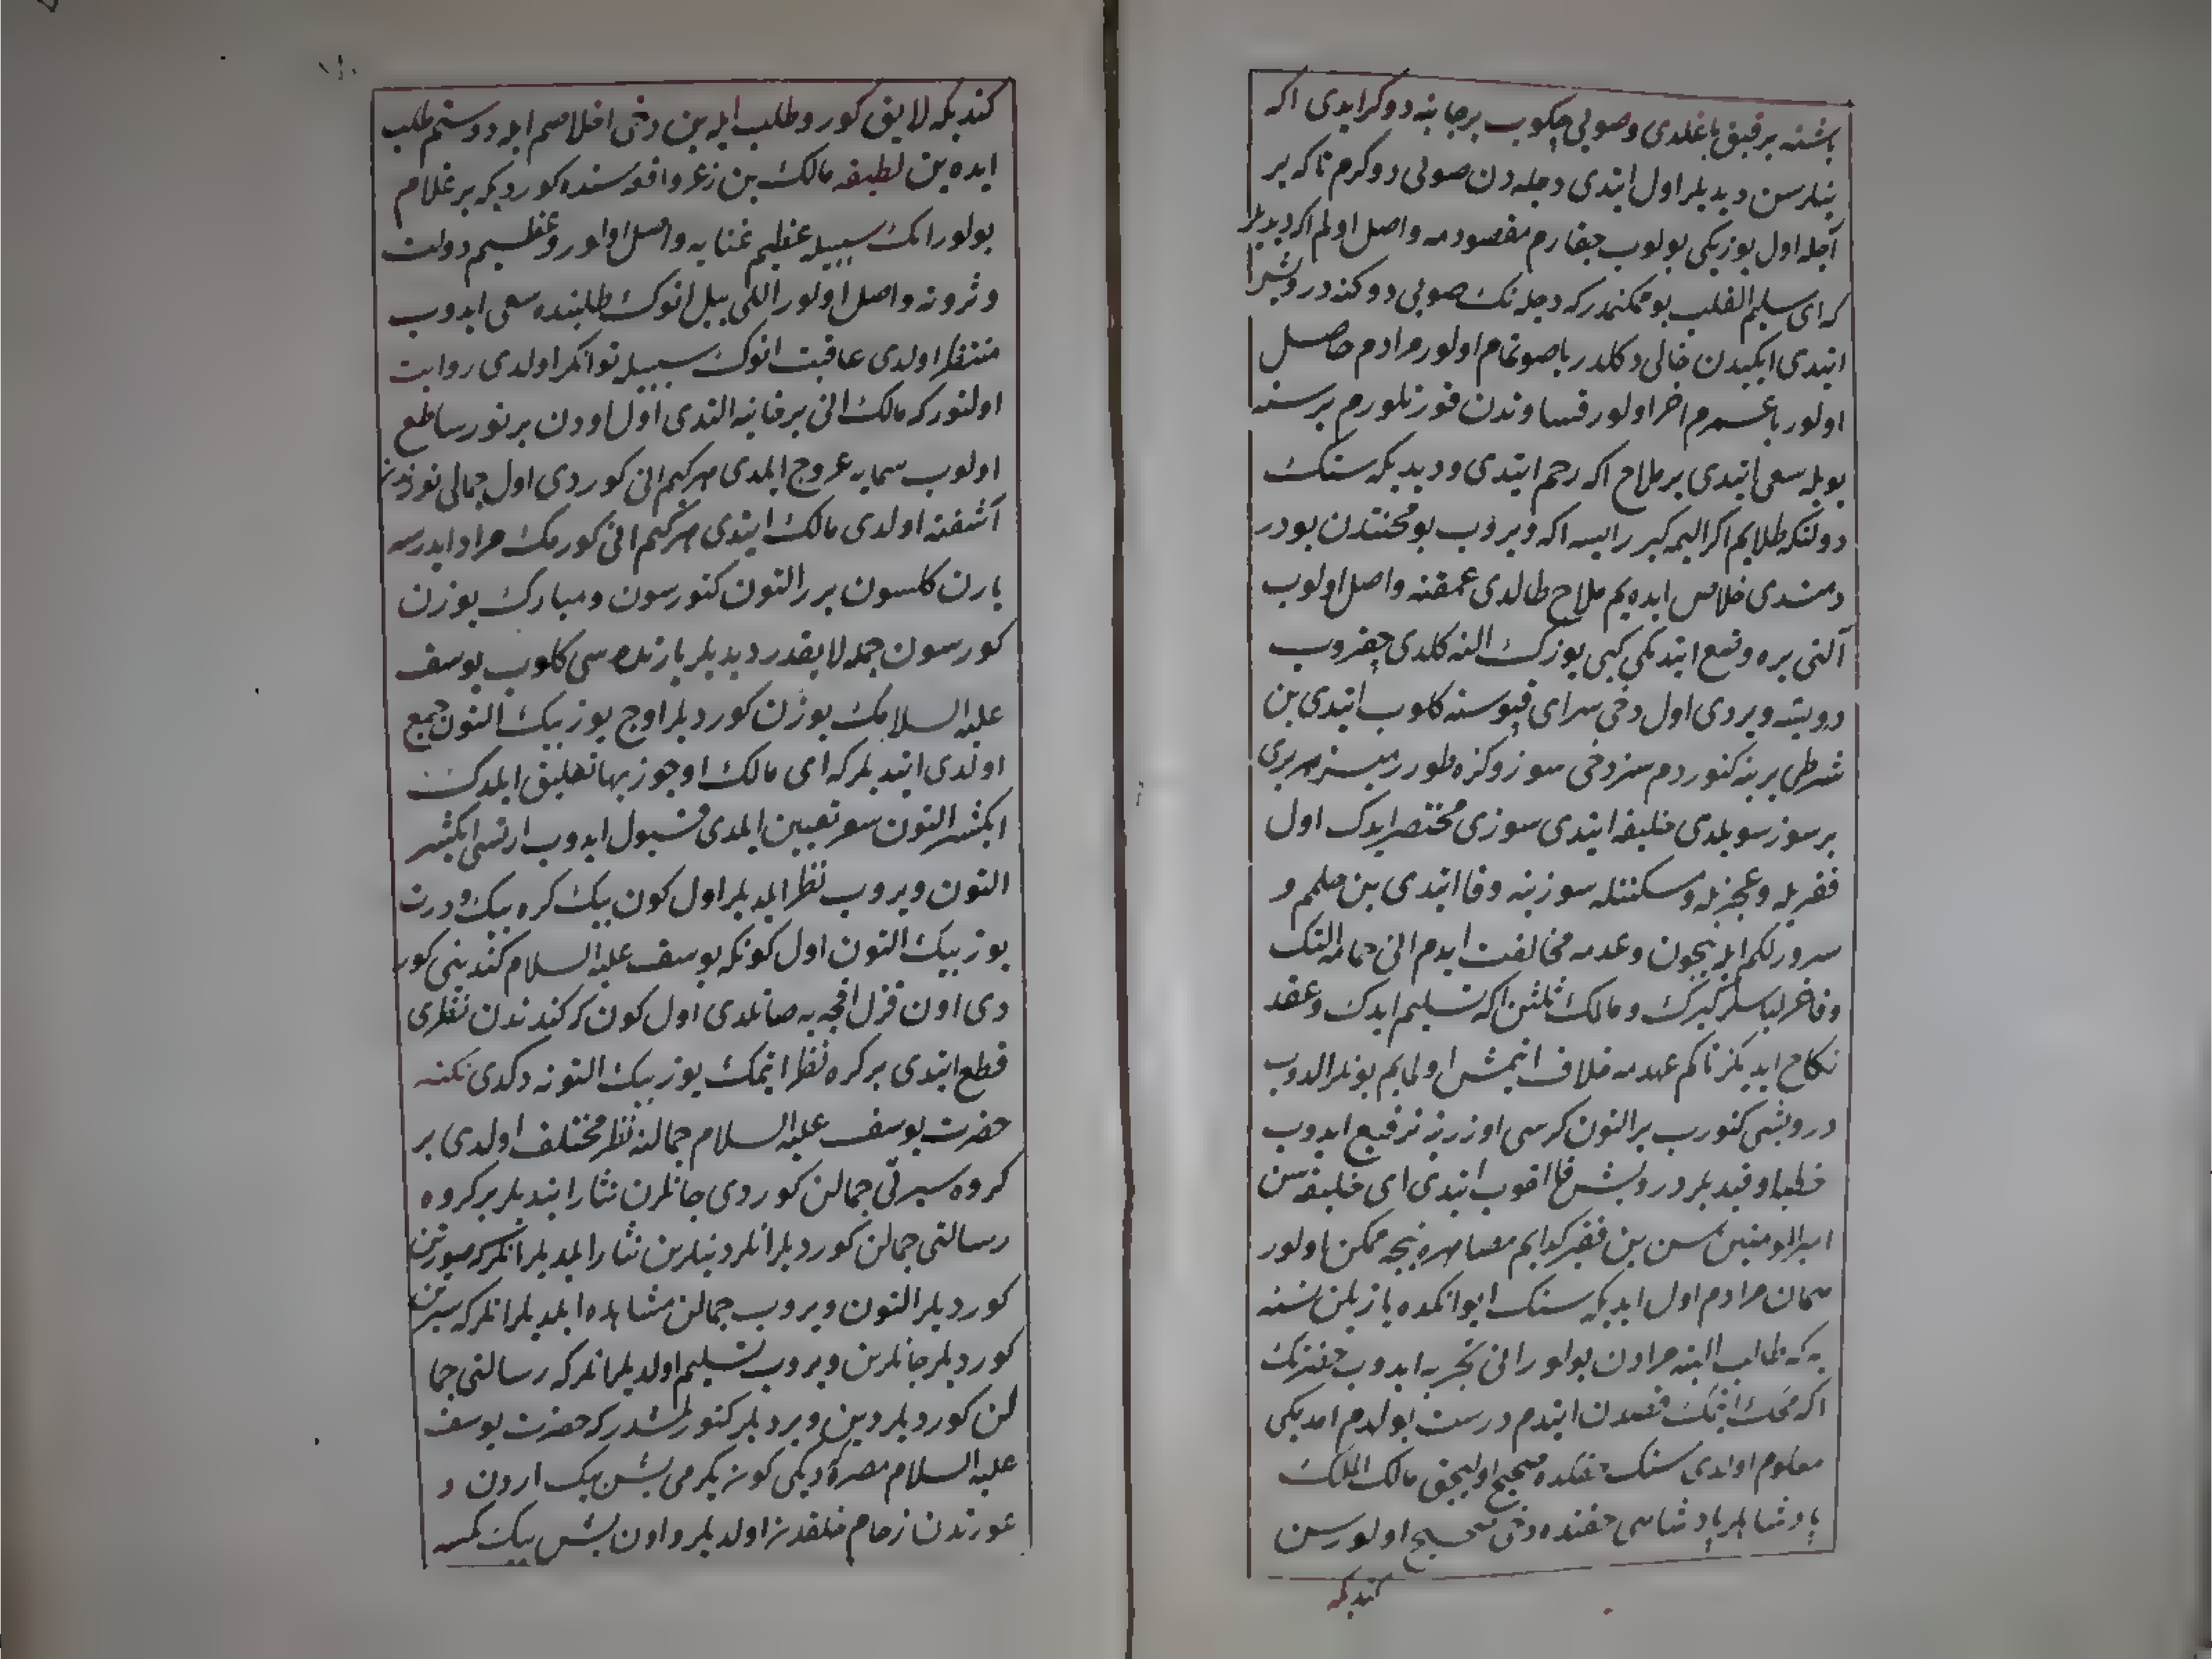 باشنه برقبق باغلدی وصویی چکوب برجانبه دوکرایدی اکه
نیلرسن دیدیلر اول ایتدی دجله دن صویی دوکرم تاکه بر
آجله اول یوزیکی بولوب چقارم مقصودمه واصل اولم اکه دیدیلر
که ای سلیم القلب بو ممکنمدر که دجله نک صویی دوکنه درویش
ایتدی ایکیدن خالی دکلدر یا صو تمام اولور مرادم حاصل
اولور یا عمرم اخر اولور غصه اوندن قورتلورم بر سنه
بویله سعی ایتدی بر ملاح اکه رحم ایتدی ودیدیکه سنک
دولتکه طلایم اکر الیمه کیرر ایسه اکه ویروب بو محنتدن بو در
دمندی خلاص ایده یم ملاح طالدی عمقنه واصل اولوب
آلنی یره وضع ایتدیکی کبی یوزک النه کلدی چقروب
درویشه ویردی اول دخی سرای قپوسنه کلوب ایتدی بن
شرطی یرینه کتوردم سز دخی سوزوکزه طورر میسز هر بری
بر سوز سویلدی خلیفه ایتدی سوزی مختصر ایدک اول
فقریله وعجزیله ومسکنتله سوزینه وفا ایتدی بن حلمم و
سرورلکم ایله نیچون وعدمه مخالفت ایدم انی حمامه التک
وفاخر لباسلر کیرک ومالک ثلثن اکه تسلیم ایدک وعقد
نکاح ایدیکز تاکم عهدمه خلاف ایتمش اولمایم بونلر الدوب
درویشی کتورب بر التون کرسی اوزرینه ترفیع ایدوب
خطبه اوقیدیلر درویش قالقوب ایتدی ای خلیفه سن
امیرالمومنین سن بن فقیر کدایم مصاهره نیجه ممکن اولور
همان مرادم اول ایدیکه سنک ایوانکده یازیلن نسنه
یه که طالب البته مرادن بولور انی تجربه ایدوب حضرتک
اکه محک ایتمک قصدن ایتدم درست بولدم امدیکی
معلوم اولدی سنک حقکده صحیح اولیجق مالک الملک
پادشاهلر پادشاهی حقنده دخی صحیح اولورسن
کندیکه
کندیکه لایق کورو طلب ایله بن دخی اخلاصم ایله دوستم طلب
ایده ین لطیفه مالک بن زعر واقعه سنده کوردیکه بر غلام
بولور انک سببیله عظیم غنایه واصل اولور وعظیم دولت
وثروته واصل اولور اللی ییل انوک طلبنده سعی ایدوب
منتظر اولدی عاقبت انوک سببیله توانکر اولدی روایت
اولنور که مالک انی بر خانیه التدی اول اودن بر نور ساطع
اولوب سمایه عروج ایلدی هر کیم انی کوردی اول جمالی نوردن
آشفته اولدی مالک ایتدی هر کیم انی کورمک مراد ایدرسه
یارن کلسون برر التون کتورسون ومبارک یوزن
کورسون جمله لایقدر دیدیلر یارنده سی کلوب یوسف
علیه السلامک یوزن کوردیلر اوچ یوز بیک التون جمع
اولدی ایتدیلر که ای مالک اوجوز بها تعلیق ایلدک
ایکیشر التون سعر تعیین ایلدی قبول ایدوب ارتسی ایکیشر
التون ویروب نظر ایلدیلر اول کون بیک کره بیک ودرت
یوز بیک التون اول کونکه یوسف علیه السلام کندینی کور
دی اون قزل اقچیه صاتلدی اول کون که کندندن نظری
قطع ایتدی بر کره نظر ایتمک یوز بیک التونه دکدی نکته
حضرت یوسف علیه السلام جمالنه نظر مختلف اولدی بر
کروه سیرتی جمالن کوردی جانلرن نثار ایتدیلر بر کروه
رسالتی جمالن کوردیلر انلر دینلرین نثار ایلدیلر انلر که صورتن
کوردیلر التون ویروب جمالن مشاهده ایلدیلر انلر که سیرتن
کوردیلر جانلرین ویروب تسلیم اولدیلر انلر که رسالتی جما
لن کوردیلر دین ویردیلر کتورلمشدر که حضرت یوسف
علیه السلام مصره کیردیکی کون یکرمی بش بیک اردن و
عورتدن زحام خلقدن اولدیلر واون بش بیک کمسه